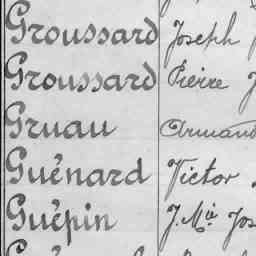 Groussard Joseph
Groussard Pierre
Gruau Armand
Guénard Victor
Guépin J. Mie Jos